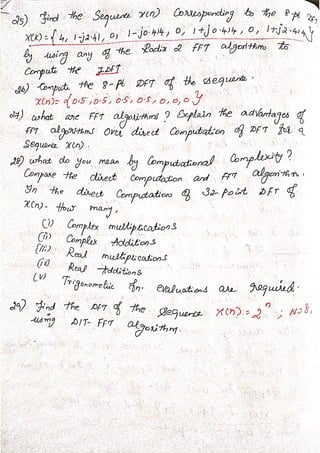 25) Find the Sequence x(n) Corresponding to the 8-pt DFT
X(K)={4, 1-j2.41, 0, 1-j0.414, 0, 1+j0.414, 0, 1+j2.414}
by using any of the Radix 2 FFT algorithm to
Compute the IDFT
26) Compute the 8-pt DFT of the sequence.
x(n)= {0.5, 0.5, 0.5, 0.5, 0, 0, 0}
27) what are FFT algorithms? Explain the advantages of
FFT algorithms Over direct Computation of DFT for a
Sequence x(n).
28) what do you mean by Computational Complexity?
Compare the direct computation and FFT algorithm.
In the direct Computation of 32-Point DFT of
x(n). How many,
(i) Complex multiplications
(ii) Complex Additions
(iii) Real multiplications
(iv) Real Additions
(v) Trigonometric fn. evaluations are required.
29) Find the DFT of the Sequence x(n) = 2^n ; N=8,
using DIT-FFT algorithm.